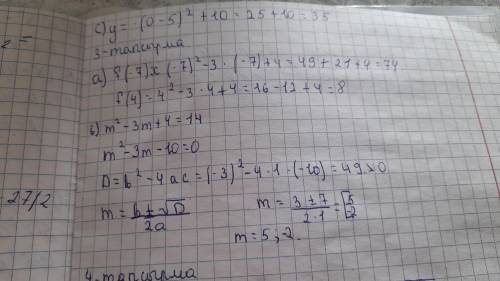 c) y = (0-5)² + 10 = 25 + 10 = 35
3-тапсырма
a) f(-7) x (-7)² - 3 · (-7) + 4 = 49 + 21 + 4 = 74
f(4) = 4² - 3 · 4 + 4 = 16 - 12 + 4 = 8
b) m² - 3m + 4 = 14
m² - 3m - 10 = 0
D = b² - 4ac = (-3)² - 4 · 1 · (-10) = 49 > 0
27/2
m = b ± √D / 2a m = 3 ± 7 / 2 · 1 = [5 -2
m = 5 ; -2.
4-тапсырма